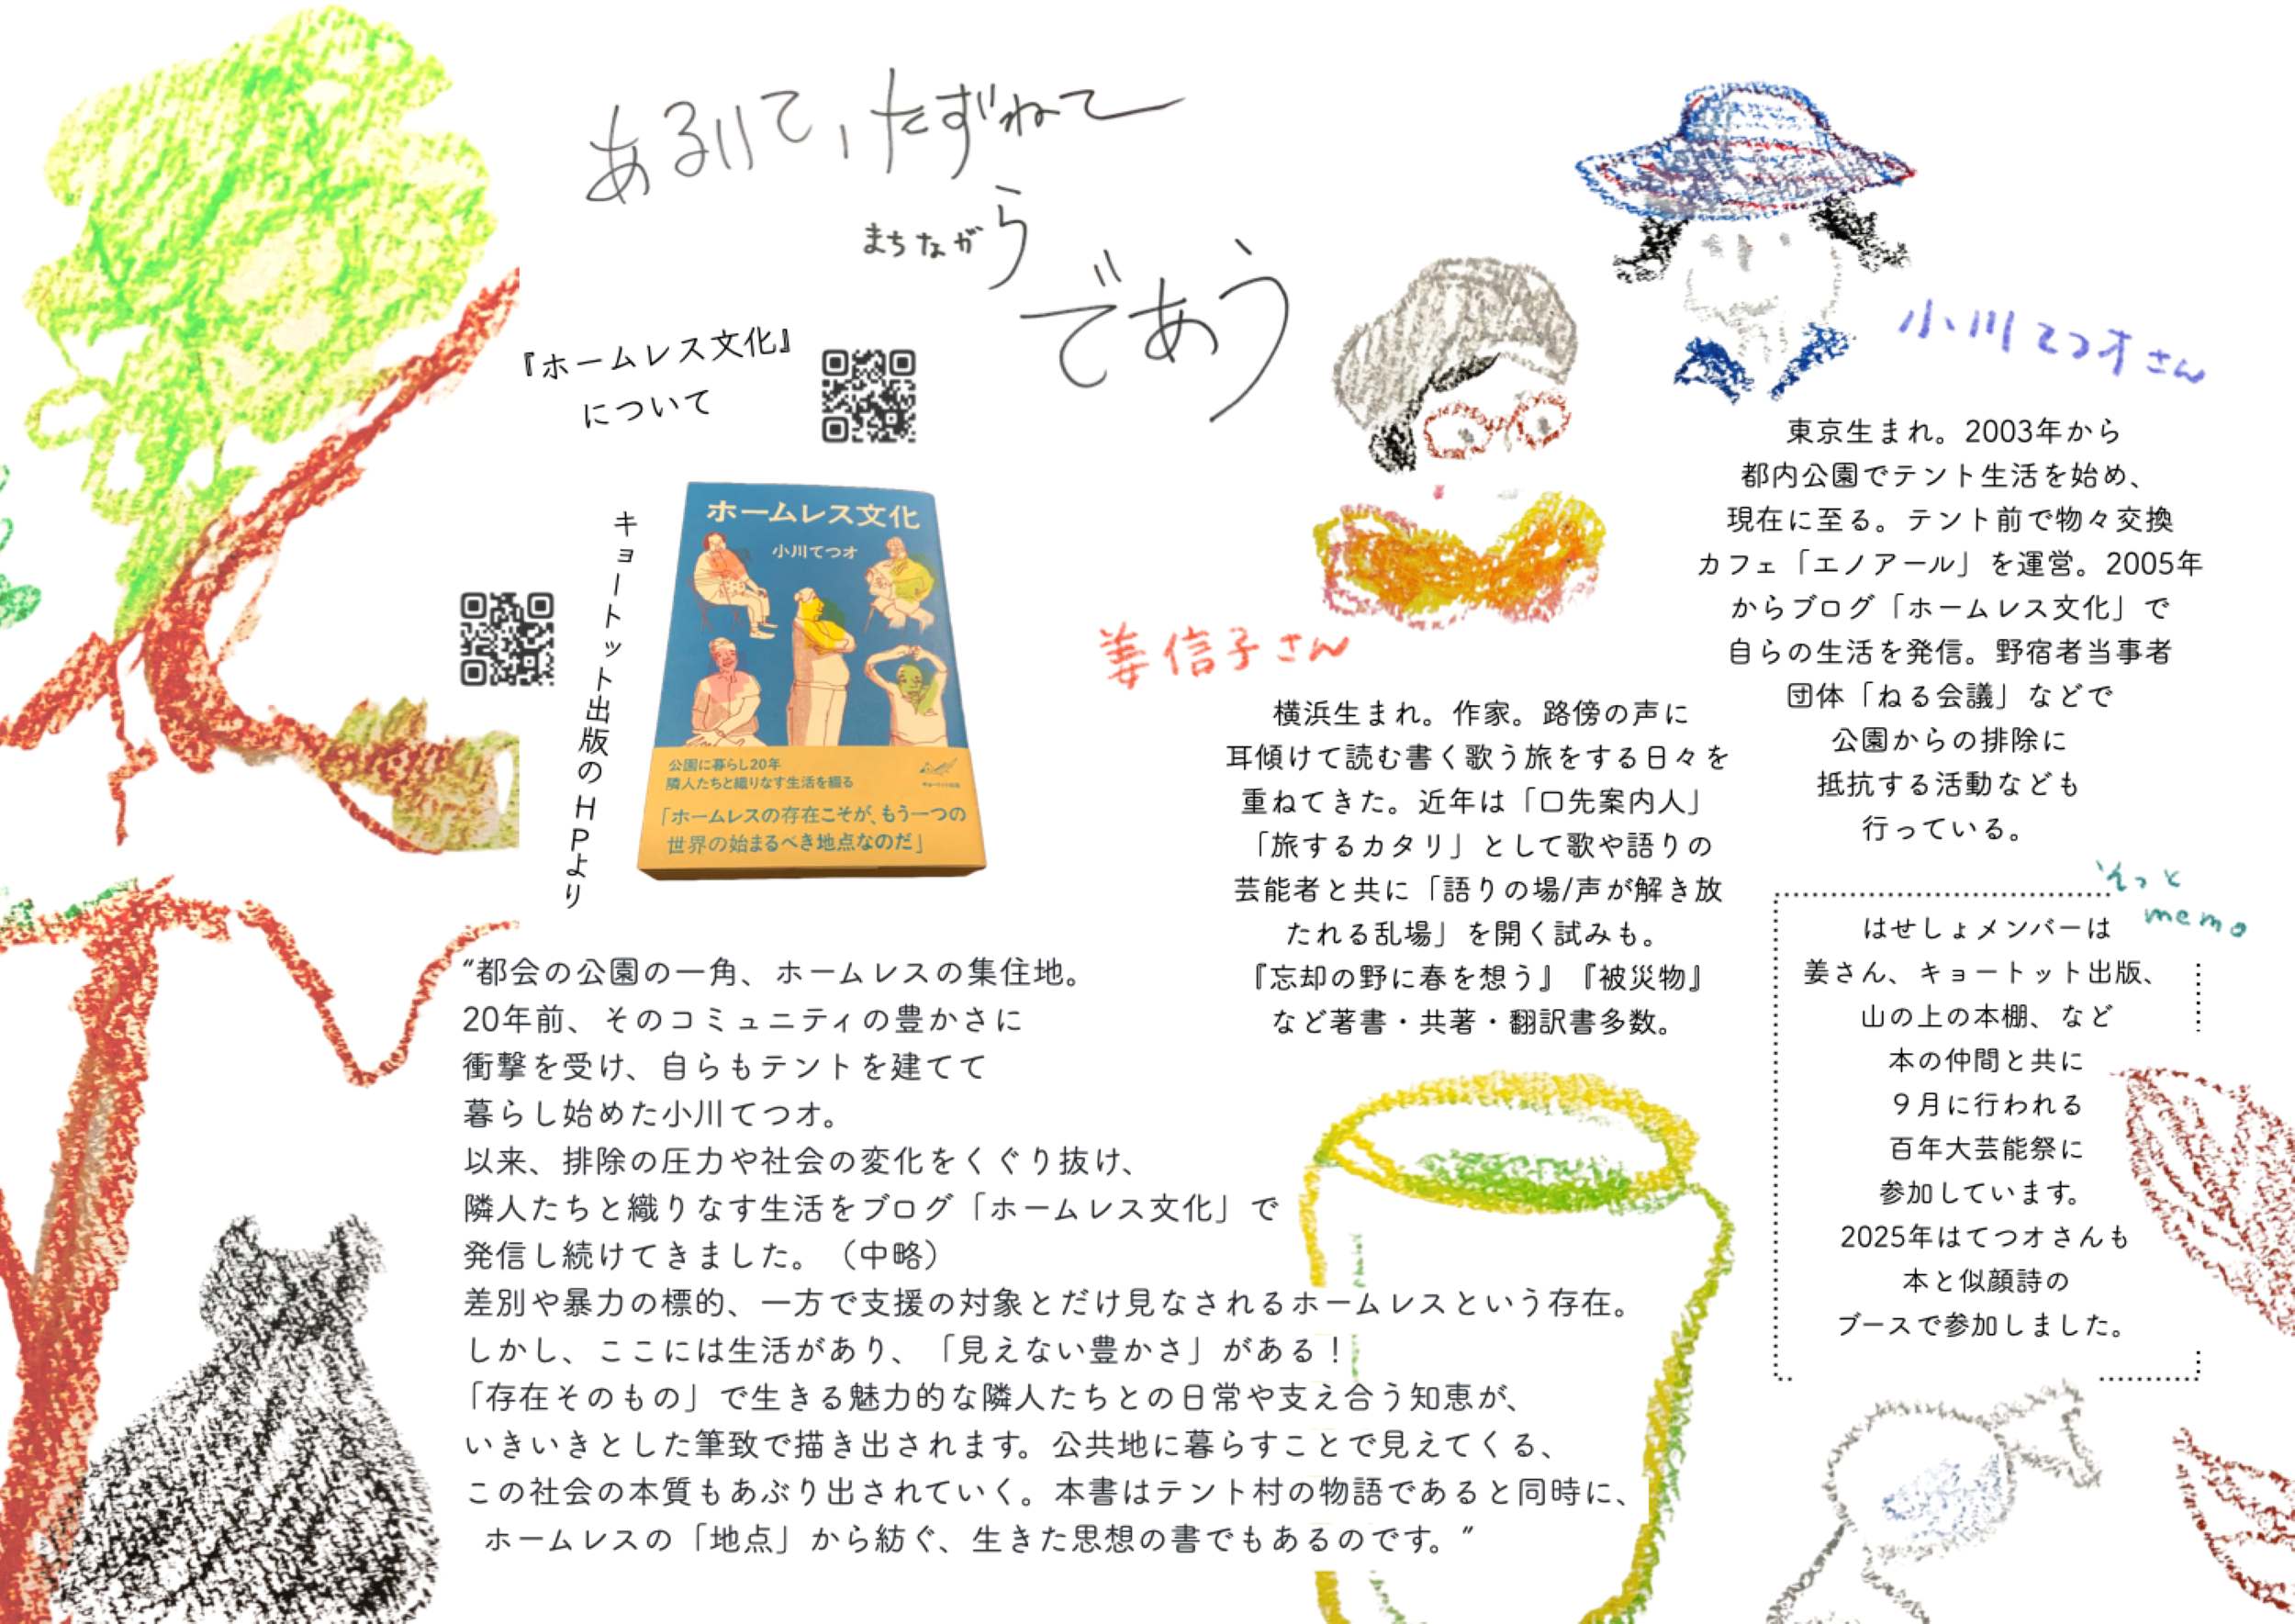 あるいて、たずねて
まちながら
であう
『ホームレス文化』
について
キョートット出版のHPより
ホームレス文化
小川てつオ
公園に暮らし20年
隣人たちと織りなす生活を綴る
「ホームレスの存在こそが、もう一つの
世界の始まるべき地点なのだ」
“都会の公園の一角、ホームレスの集住地。
20年前、そのコミュニティの豊かさに
衝撃を受け、自らもテントを建てて
暮らし始めた小川てつオ。
以来、排除の圧力や社会の変化をくぐり抜け、
隣人たちと織りなす生活をブログ「ホームレス文化」で
発信し続けてきました。（中略）
差別や暴力の標的、一方で支援の対象とだけ見なされるホームレスという存在。
しかし、ここには生活があり、「見えない豊かさ」がある！
「存在そのもの」で生きる魅力的な隣人たちとの日常や支え合う知恵が、
いきいきとした筆致で描き出されます。公共地に暮らすことで見えてくる、
この社会の本質もあぶり出されていく。本書はテント村の物語であると同時に、
ホームレスの「地点」から紡ぐ、生きた思想の書でもあるのです。”
姜信子さん
横浜生まれ。作家。路傍の声に
耳傾けて読む書く歌う旅をする日々を
重ねてきた。近年は「口先案内人」
「旅するカタリ」として歌や語りの
芸能者と共に「語りの場/声が解き放
たれる乱場」を開く試みも。
『忘却の野に春を想う』『被災物』
など著書・共著・翻訳書多数。
小川てつオさん
東京生まれ。2003年から
都内公園でテント生活を始め、
現在に至る。テント前で物々交換
カフェ「エノアール」を運営。2005年
からブログ「ホームレス文化」で
自らの生活を発信。野宿者当事者
団体「ねる会議」などで
公園からの排除に
抵抗する活動なども
行っている。
memo
はせしょメンバーは
姜さん、キョートット出版、
山の上の本棚、など
本の仲間と共に
９月に行われる
百年大芸能祭に
参加しています。
2025年はてつオさんも
本と似顔詩の
ブースで参加しました。